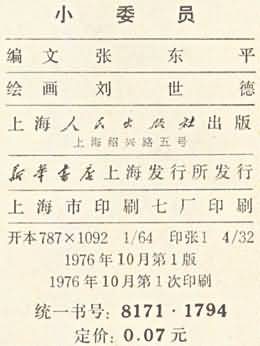 小委员
编文张东平
绘画刘世德
上海人民出版社出版
上海绍兴路五号
新华书店上海发行所发行
上海市印刷七厂印刷
开本787×1092 1/64 印张1 4/32
1976年10月第1版
1976年10月第1次印刷
统一书号：8171·1794
定价：0.07元